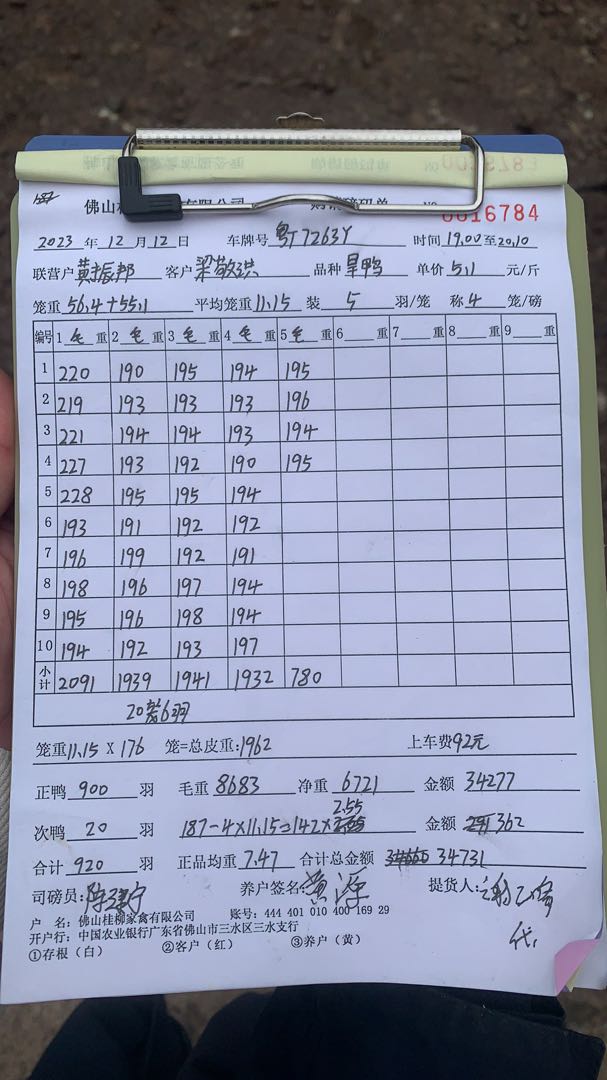 187
佛山桂 有限公司 购销磅码单 NO 0016784
2023 年 12 月 12 日 车牌号 粤J7263Y 时间 19.00 至 20.10
联营户 黄振邦 客户 梁敬洪 品种 旱鸭 单价 5.1 元/斤
笼重 56.4+55.1 平均笼重 11.15 装 5 羽/笼 称 4 笼/磅
编号 1 毛 重 2 毛 重 3 毛 重 4 毛 重 5 毛 重 6 重 7 重 8 重 9 重
1 220 190 195 194 195
2 219 193 193 193 196
3 221 194 194 193 194
4 227 193 192 190 195
5 228 195 195 194
6 193 191 192 192
7 196 199 192 191
8 198 196 197 194
9 195 196 198 194
10 194 192 193 197
小计 2091 1939 1941 1932 780
20装6羽
笼重 11.15 X 176 笼=总皮重: 1962 上车费92元
正鸭 900 羽 毛重 8683 净重 6721 金额 34277
次鸭 20 羽 187-4×11.15=142×2.55 金额 362
合计 920 羽 正品均重 7.47 合计总金额 34731
司磅员: 养户签名: 黄源 提货人:
代
户 名: 佛山桂柳家禽有限公司 账号: 444 401 010 400 169 29
开户行: 中国农业银行广东省佛山市三水区三水支行
①存根（白） ②客户（红） ③养户（黄）